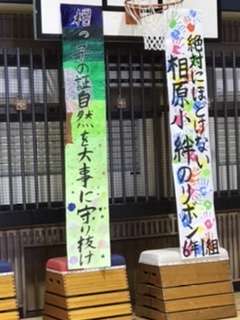 絶対にほどけない
相原小 絆のリボン
6年1組
相っ子の証自然を大事に守り抜け